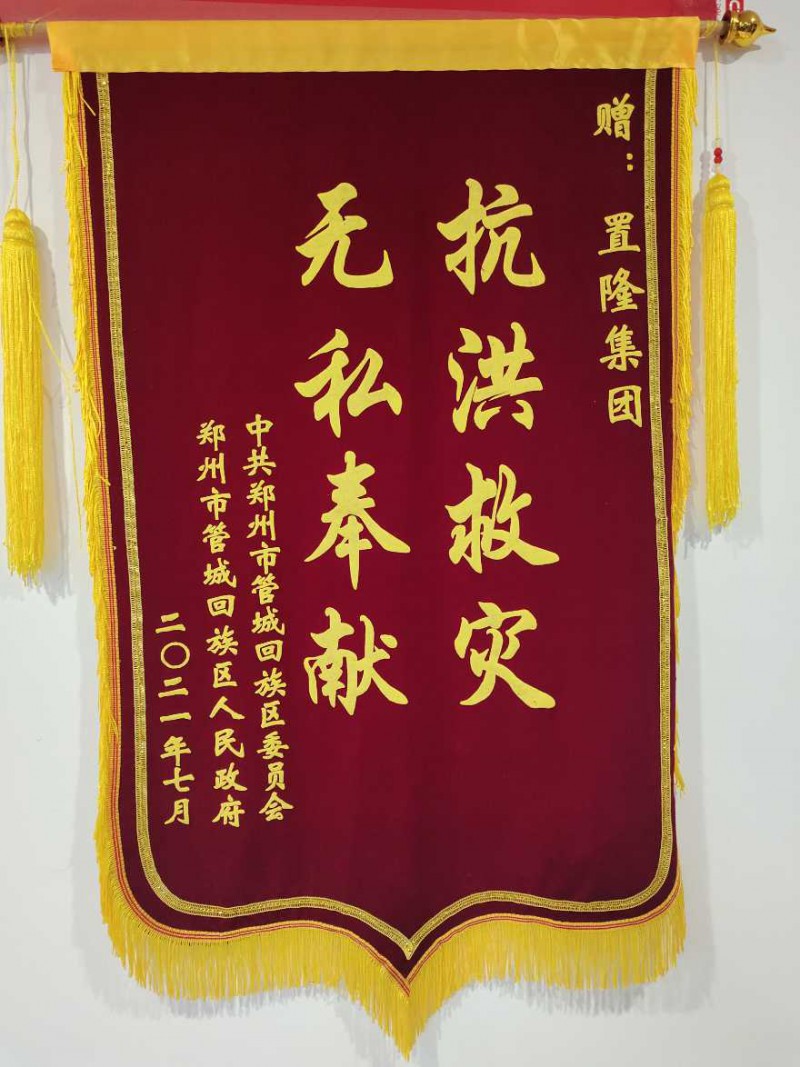 赠：置隆集团
抗洪救灾
无私奉献
中共郑州市管城回族区委员会
郑州市管城回族区人民政府
二〇二一年七月